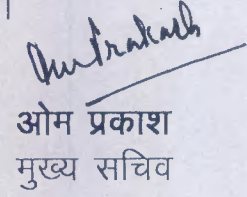 Om Prakash
ओम प्रकाश
मुख्य सचिव